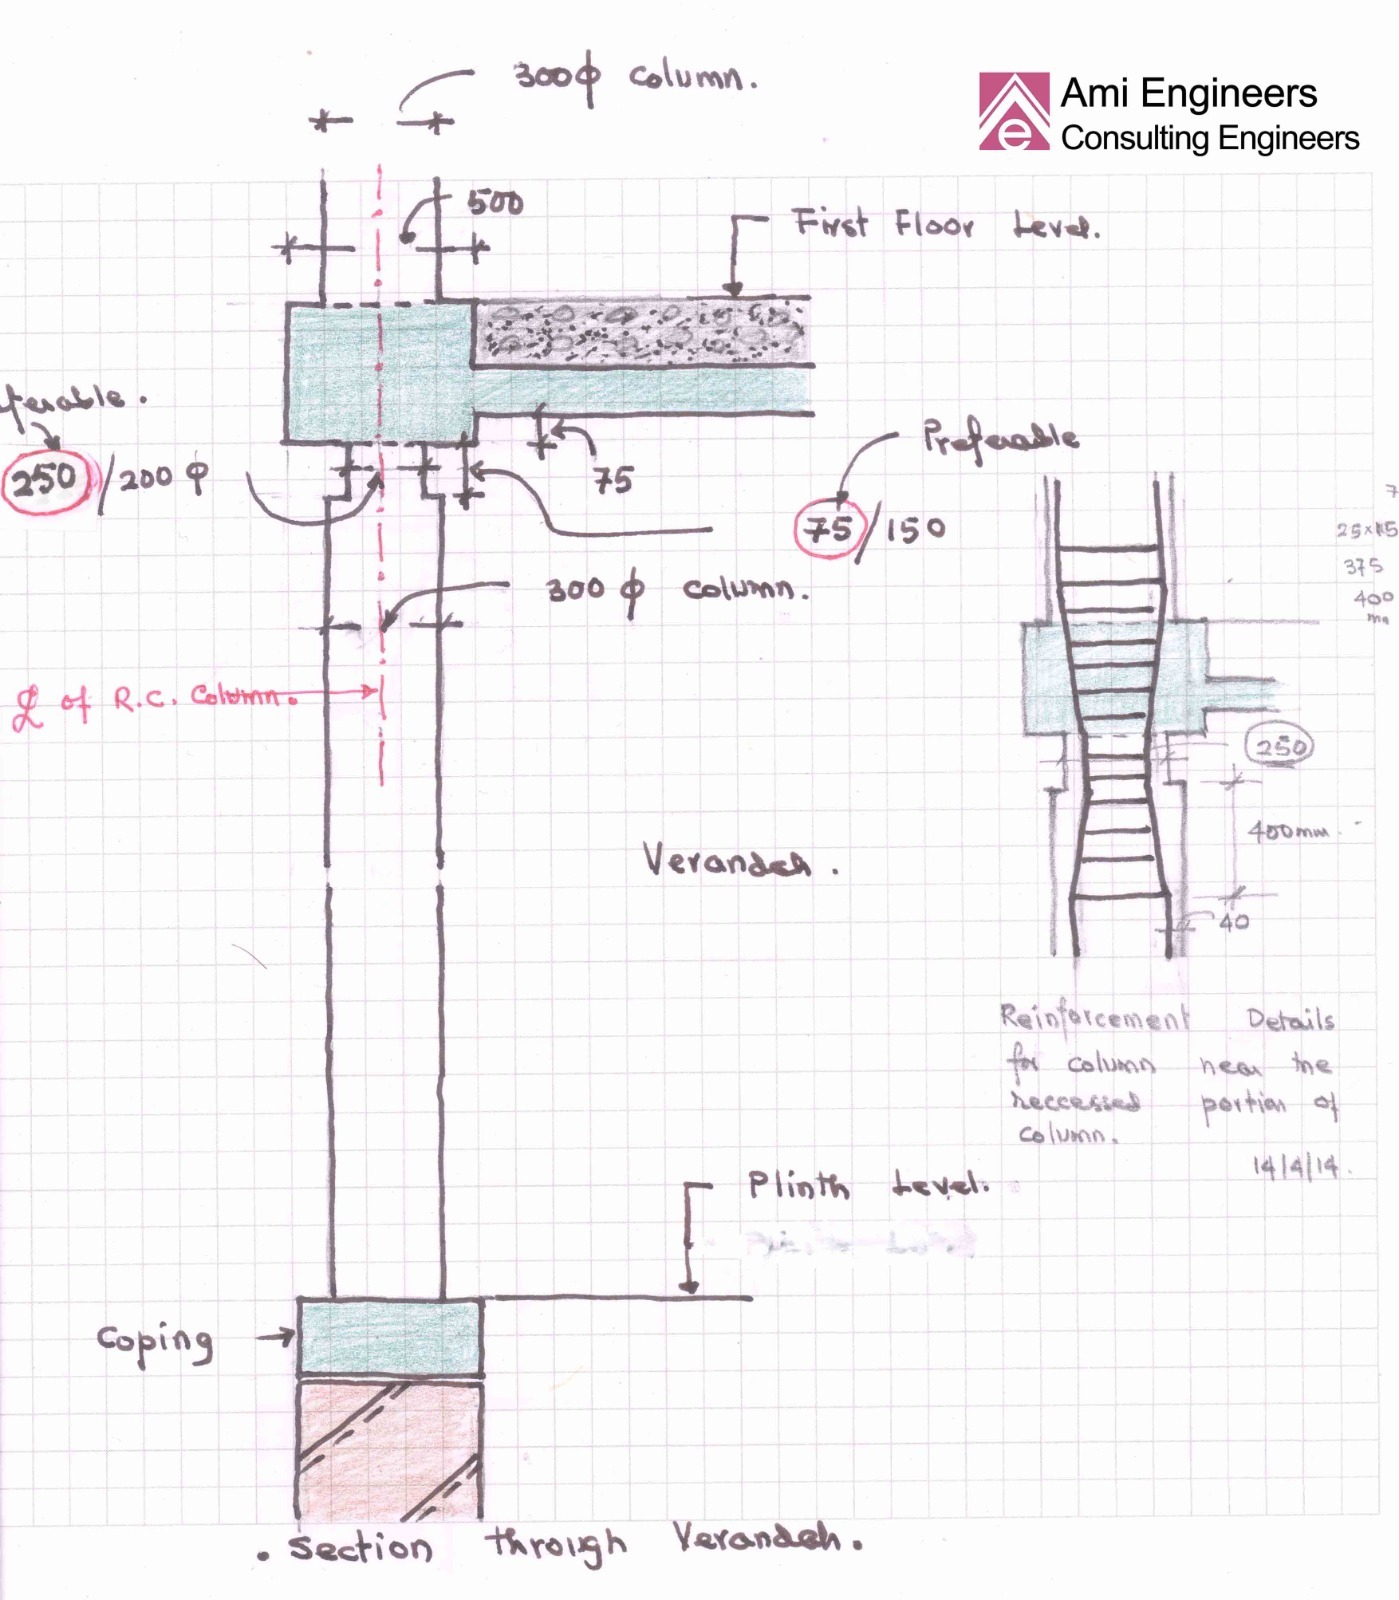 300ϕ column.
Ami Engineers
Consulting Engineers
500
First Floor Level.
250/200 ϕ
75
Preferable
75/150
300 ϕ column.
℄ of R.C. Column.
Verandah.
375
400
250
400mm
40
Reinforcement Details
for column near the
reccessed portion of
column.
14/4/14.
Plinth Level.
Coping
. Section through Verandah.